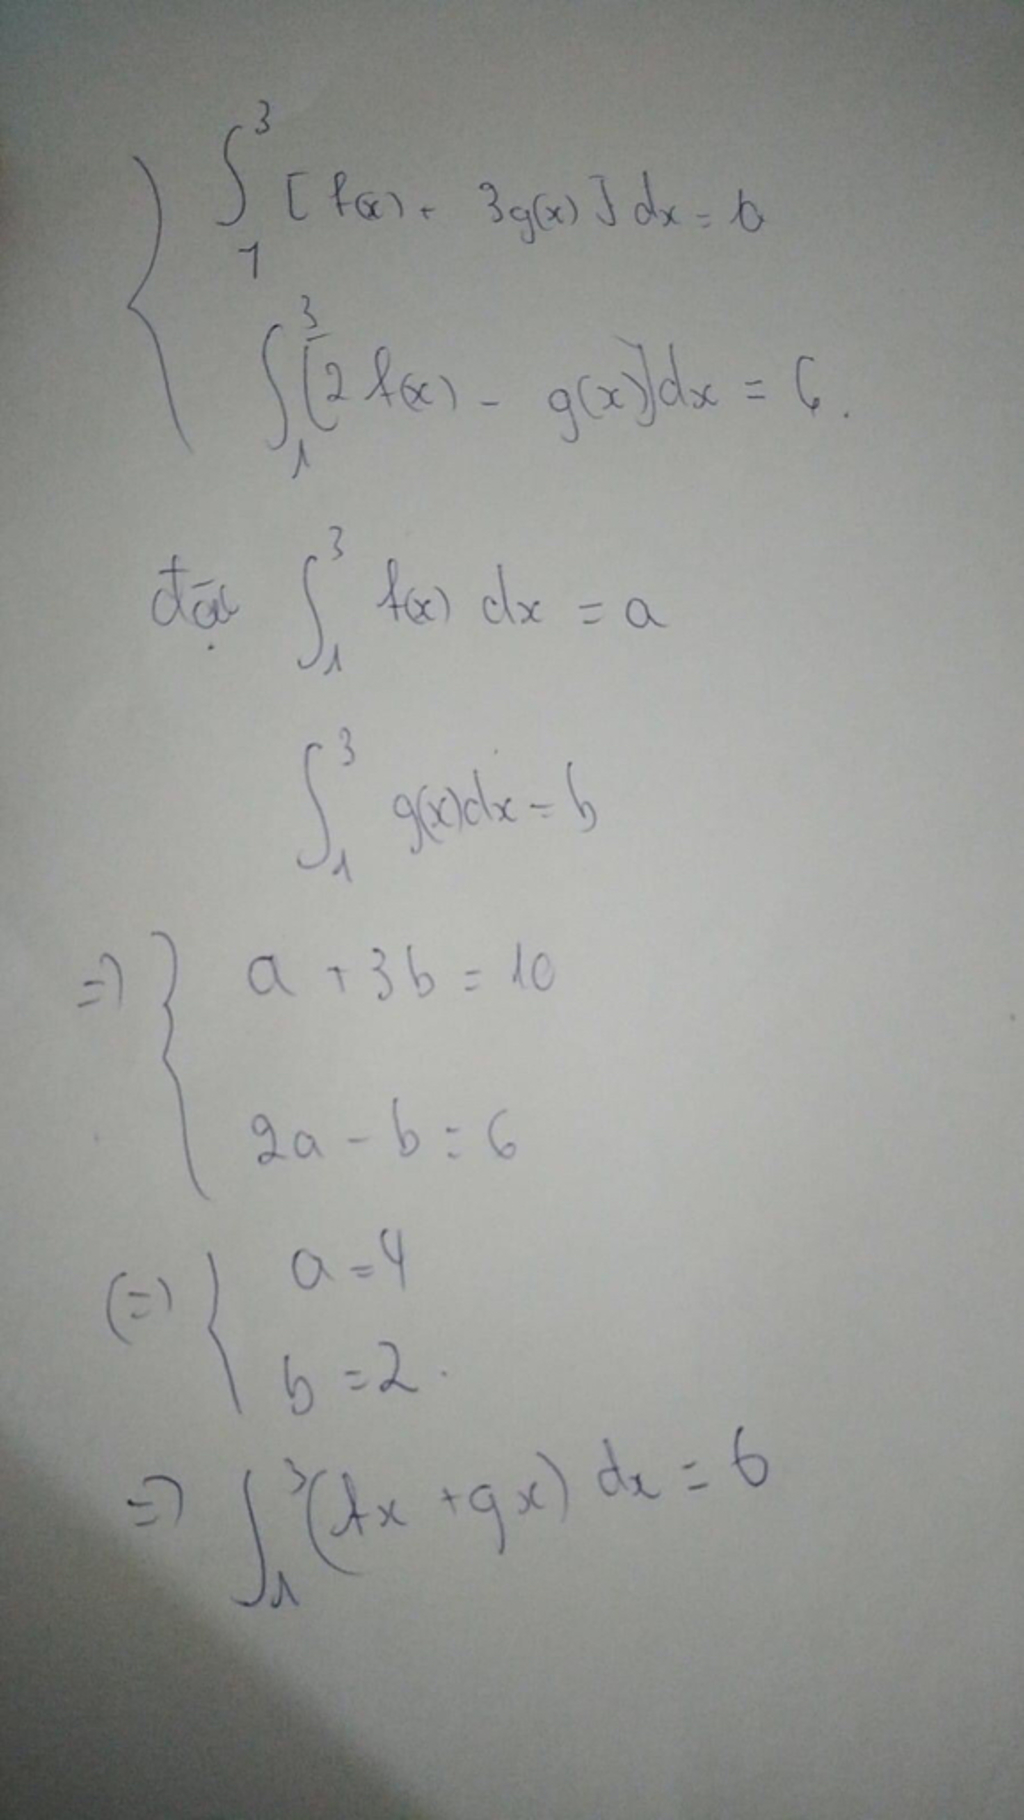 ∫₁³ [f(x) + 3g(x)] dx = 10
∫₁³ [2f(x) - g(x)] dx = 6.
đặt ∫₁³ f(x) dx = a
∫₁³ g(x) dx = b
=> { a + 3b = 10
2a - b = 6
(=) { a = 4
b = 2.
=> ∫₁³ (fx + gx) dx = 6